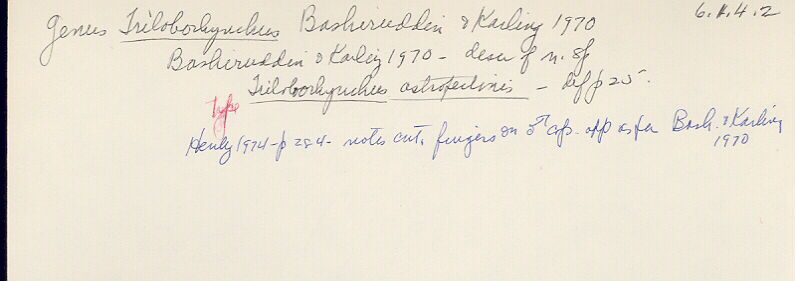 6.1.4.2
Genus Triloborhynchus Bashiruddin & Karling 1970
Bashiruddin & Karling 1970 - descr of n. sp
Triloborhynchus astropectinis - def p 25.
type
Henly 1974 - p 284 - notes cut. fingers on ♂ app as per Bash. & Karling
1970